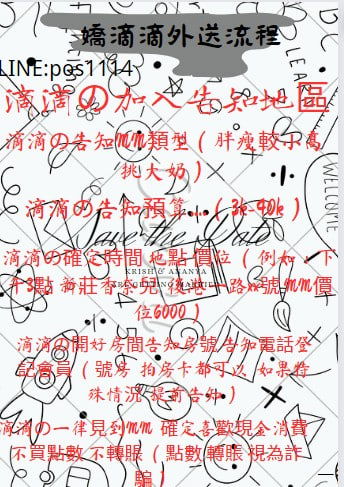 嬌滴滴外送流程
LINE:pos1114
滴滴の加入告知地區
滴滴の告知MM類型（胖瘦較小高
挑大奶）
滴滴の告知預算...（3k-40k）
Save the Date
滴滴の確定時間 地點價位（例如、下
KRISH & ANANYA
午3點 新莊香 後港一路xx號MM價
位6000）
滴滴の開好房間告知房號 告知電話登
記會員（號房 拍房卡都可以 如果特
殊情況 提前告知）
滴滴の一律見到MM 確定喜歡現金消費
不買點數 不轉賬（點數 轉賬 視為詐
騙）
WELCOME